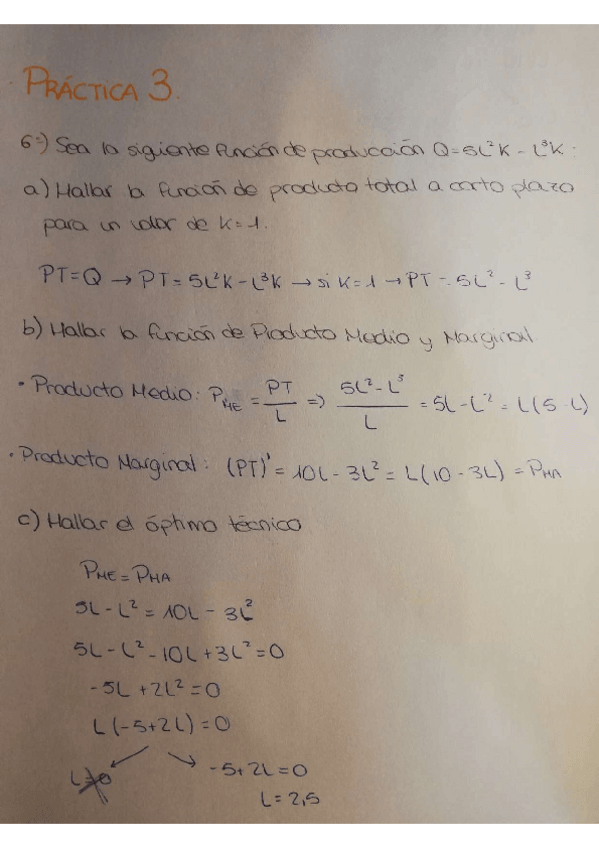 PRÁCTICA 3.
6º) Sea la siguiente función de producción Q=5L²K - L³K :
a) Hallar la función de producto total a corto plazo
para un valor de K=1.
PT=Q → PT= 5L²K-L³K → si K=1 → PT = 5L² - L³
b) Hallar la función de Producto Medio y Marginal
• Producto Medio: P_ME = PT/L => (5L²-L³)/L = 5L-L² = L(5-L)
• Producto Marginal: (PT)' = 10L - 3L² = L(10-3L) = P_MA
c) Hallar el óptimo técnico
P_ME = P_MA
5L - L² = 10L - 3L²
5L - L² - 10L + 3L² = 0
-5L + 2L² = 0
L(-5+2L) = 0
L=0 -5+2L=0
L = 2,5